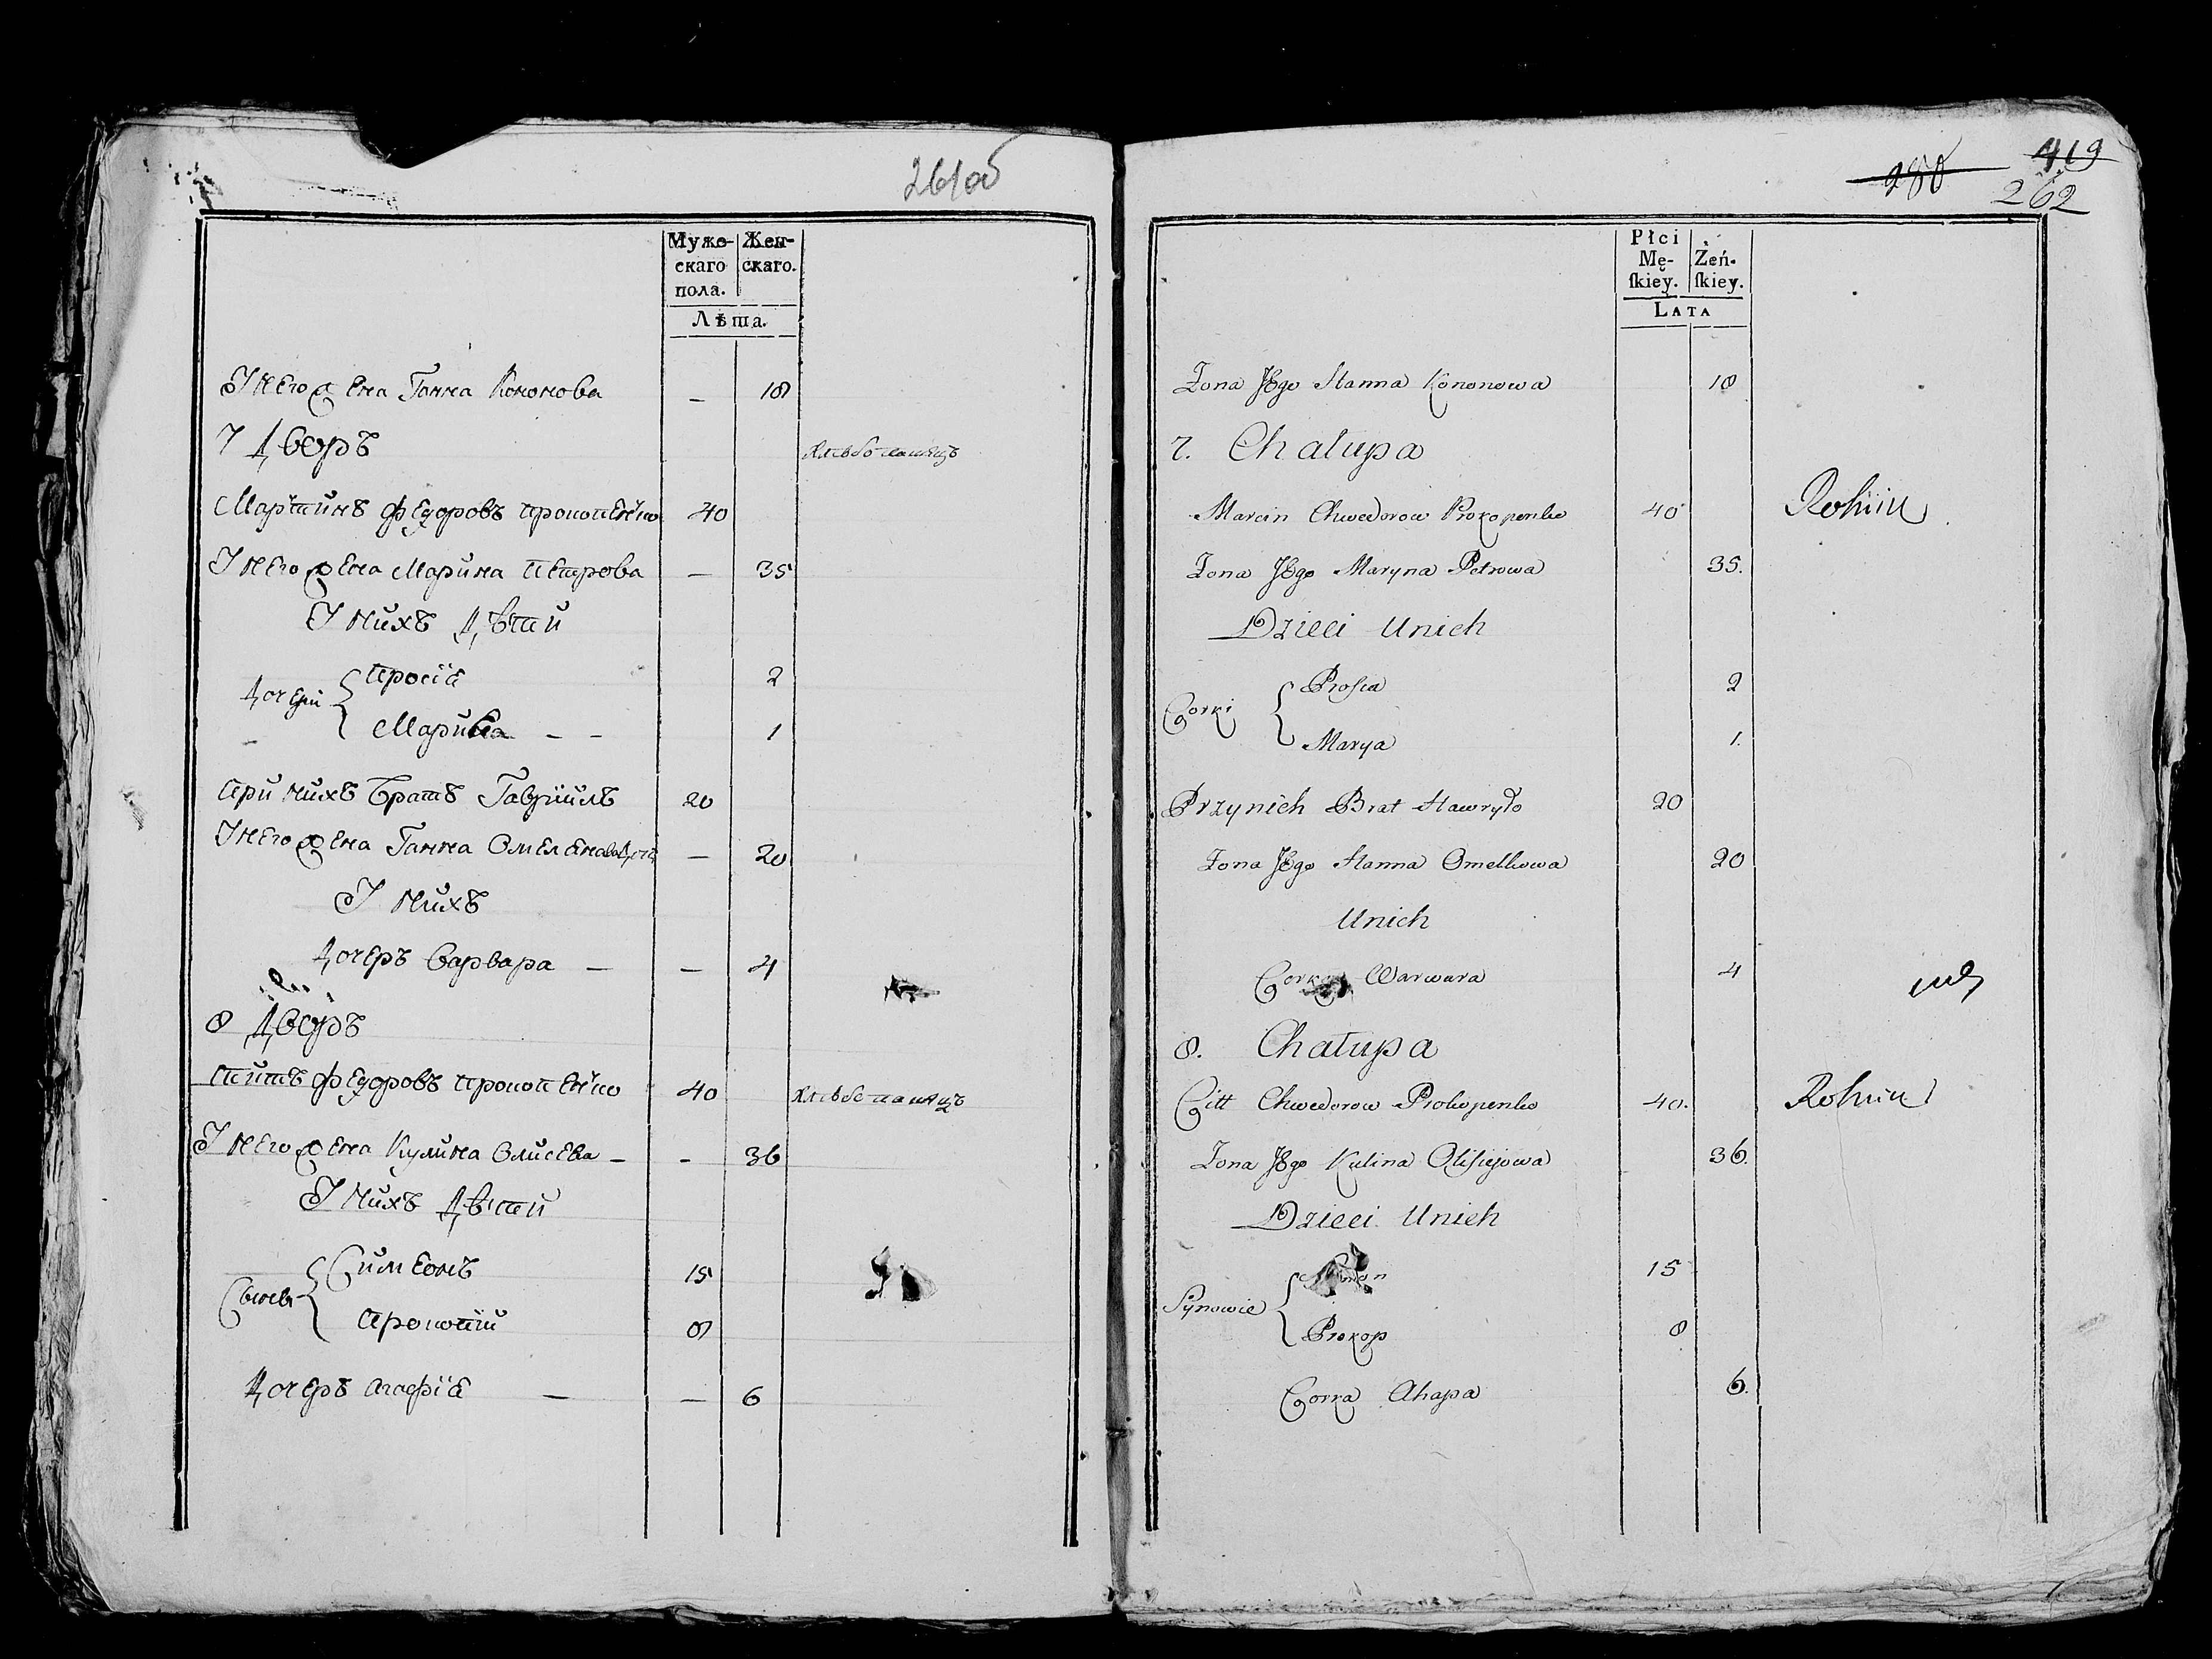 261об
Муже-
скаго
пола.
Жен-
скаго.
Лѣта.
У него жена Ганна Кононова - 18
7 Дворъ
хлѣбопашецъ
Мартинъ Федоровъ прокопенко 40
У него жена Марина Петрова - 35
У нихъ Дѣти
Дочери
Просія 2
Марина - - 1
При нихъ Братъ Гавріилъ 20
У него жена Ганна Омелянова - 20
У нихъ
Дочеръ Варвара - - 4
8 Дворъ
Титъ Федоровъ прокопенко 40 хлѣбопашецъ
У него жена Кулина Олисѣева - - 36
У нихъ Дѣти
Сыновья
Симеонъ 15
Прокопій 8
Дочеръ Агафія - - 6
280 419
262
Płci
Mę-
ſkiey.
Żeń-
ſkiey.
LATA
Zona Jego Hanna Kononowa 18
7. Chałupa
Marcin Chwedorow Prokopenko 40 Rolnik
Zona Jego Maryna Petrowa 35.
Dzieci Unich
Corki
Prosia 2
Marya 1.
Przynich Brat Hawryło 20
Zona Jego Hanna Omelkowa 20
Unich
Corka Warwara 4
8. Chałupa
Citt Chwedorow Prokopenko 40. Rolnik
Zona Jego Kulina Olisiejowa 36.
Dzieci Unich
Synowie
15
Prokop 8
Corka Ahapa 6.